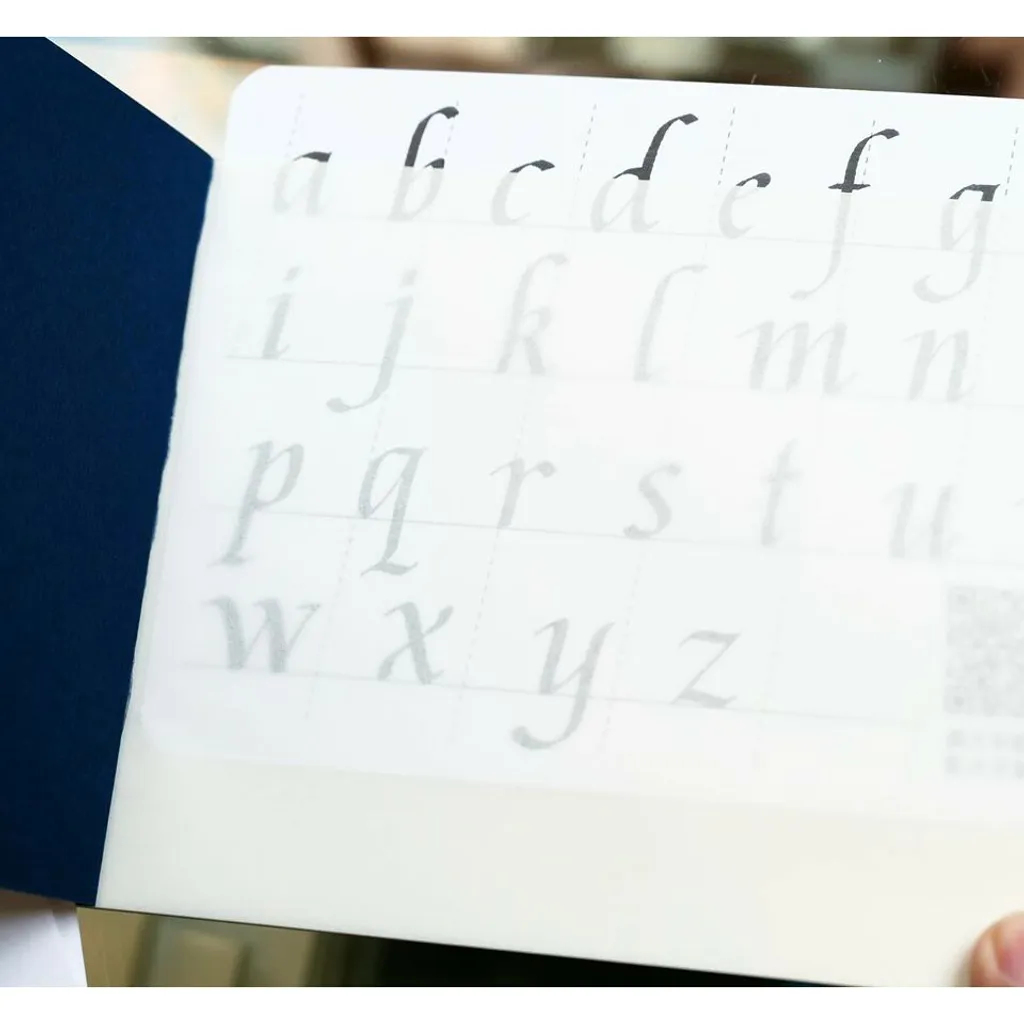 a b c d e f g
i j k l m n
p q r s t u
w x y z